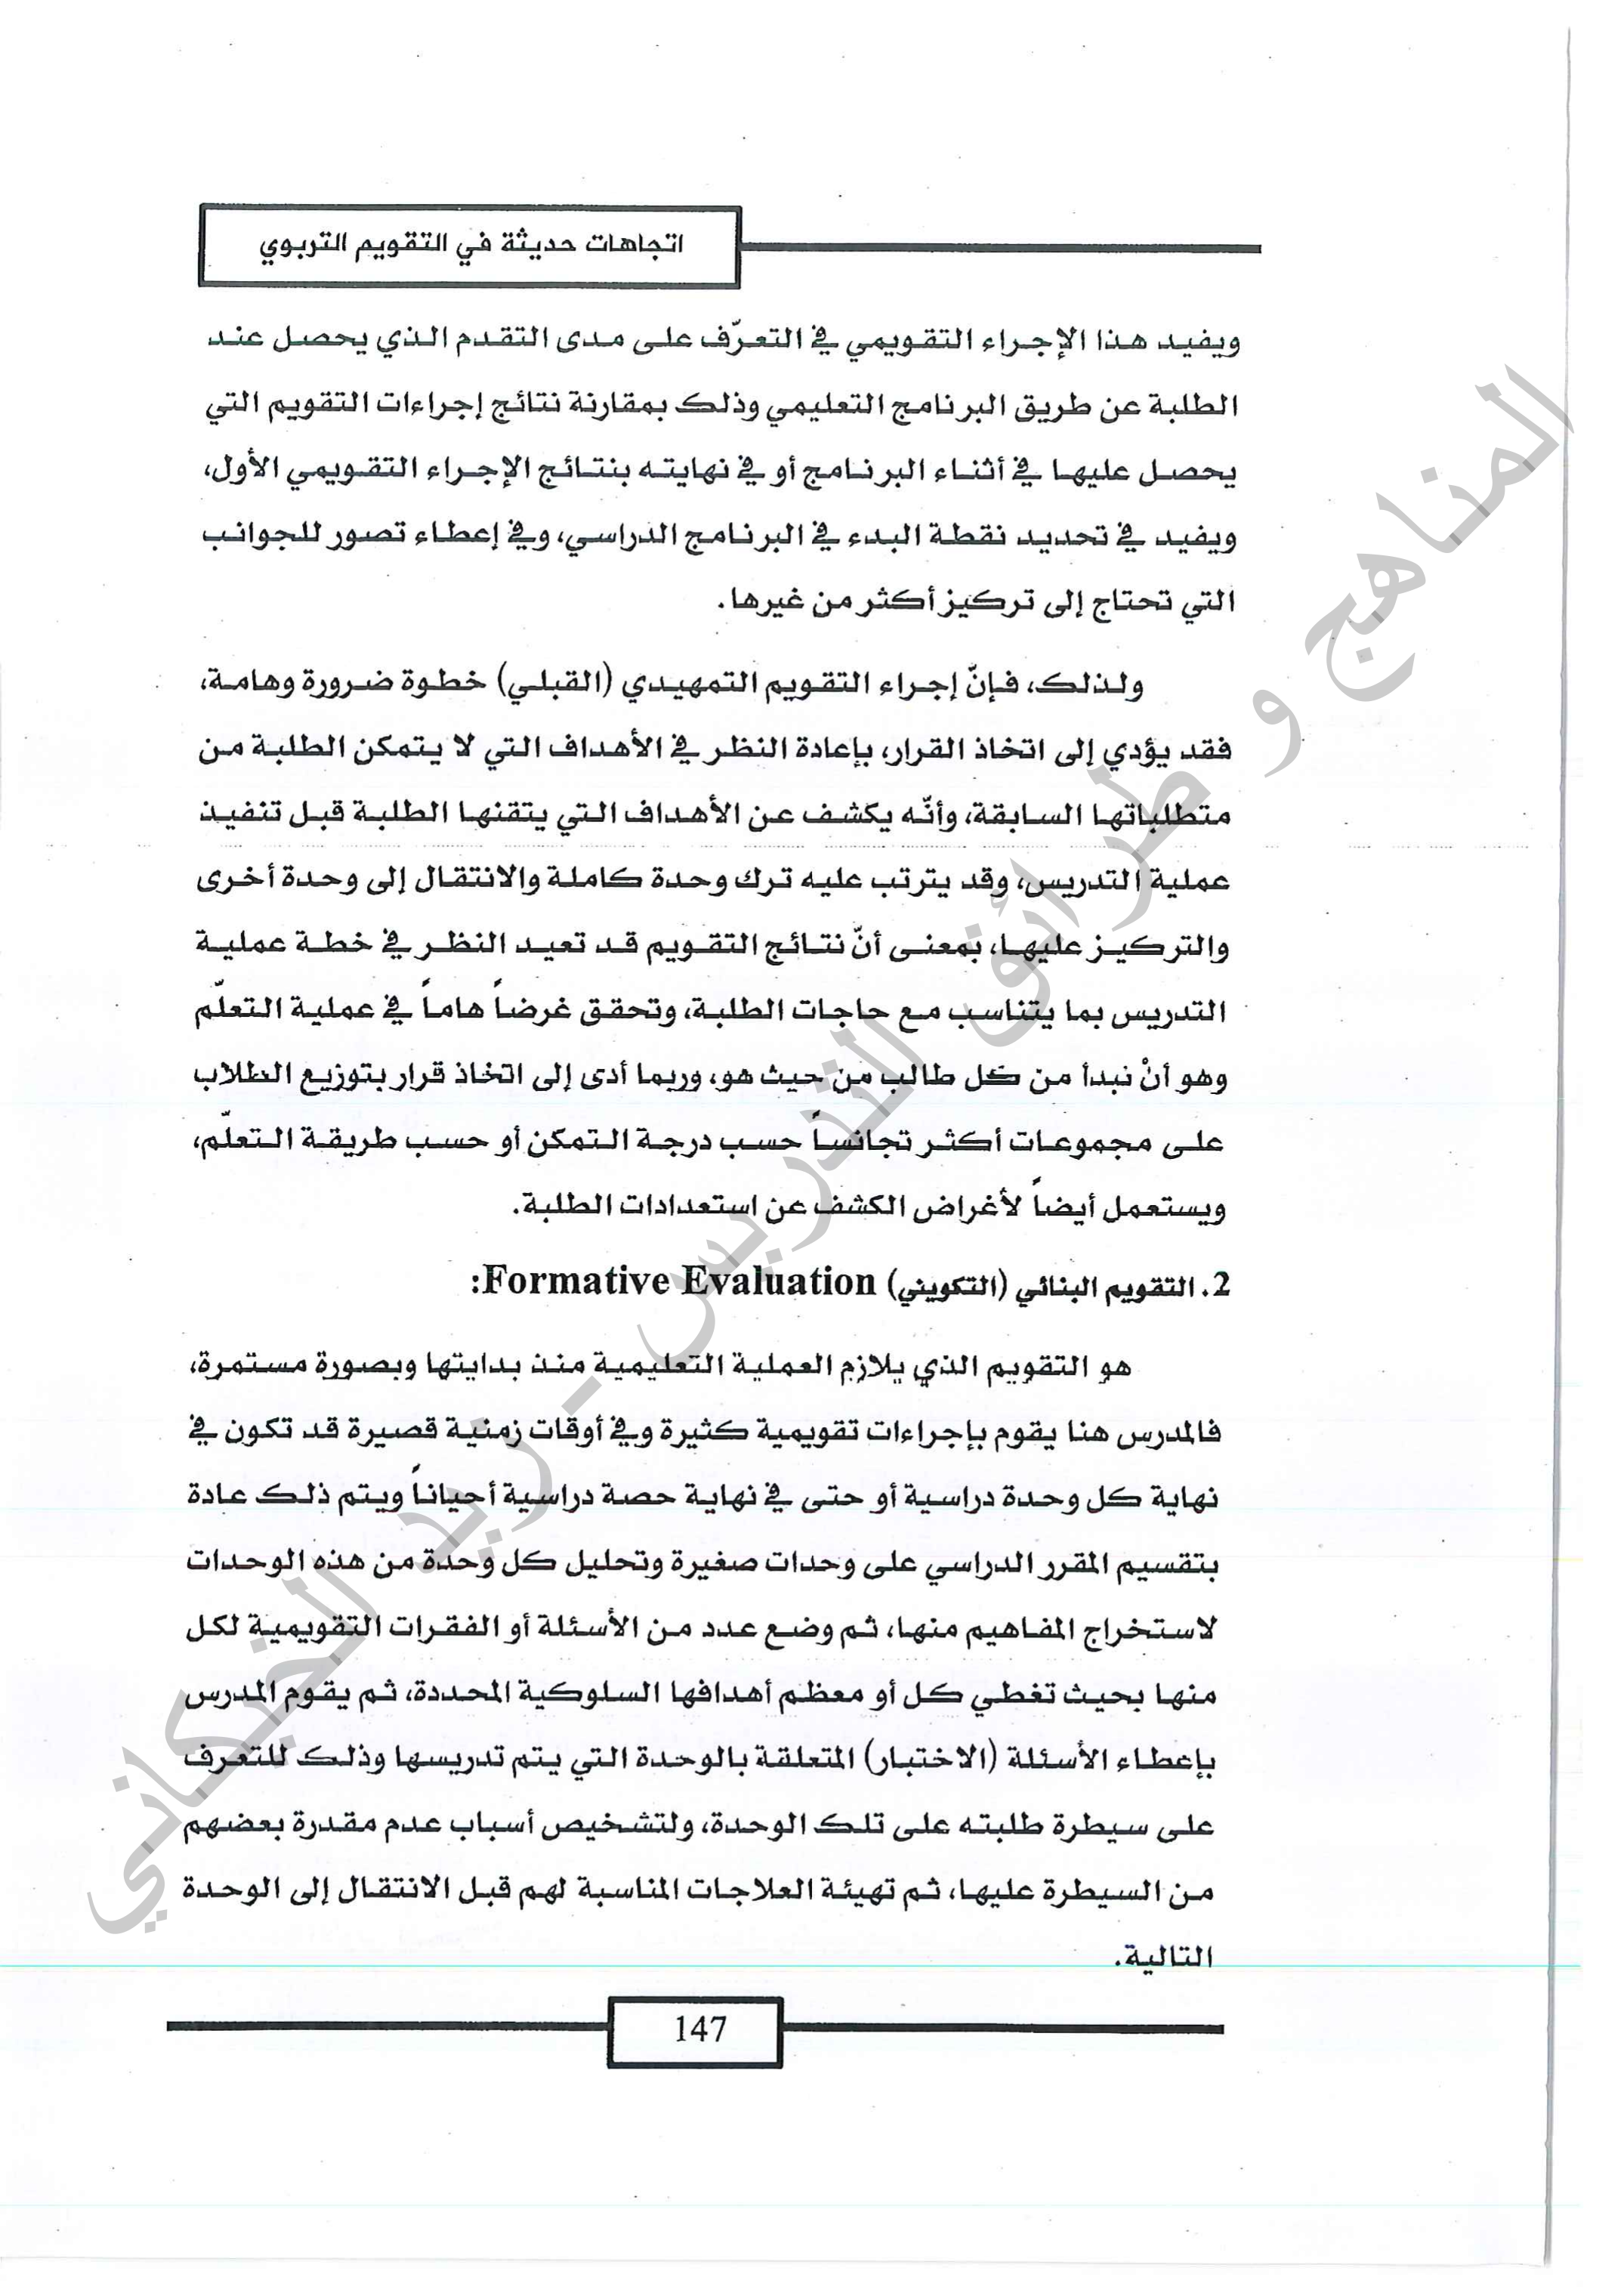 اتجاهات حديثة في التقويم التربوي
ويفيد هذا الإجراء التقويمي في التعرّف على مدى التقدم الذي يحصل عند
الطلبة عن طريق البرنامج التعليمي وذلك بمقارنة نتائج إجراءات التقويم التي
يحصل عليها في أثناء البرنامج أو في نهايته بنتائج الإجراء التقويمي الأول،
ويفيد في تحديد نقطة البدء في البرنامج الدراسي، وفي إعطاء تصور للجوانب
التي تحتاج إلى تركيز أكثر من غيرها.
ولذلك، فإنّ إجراء التقويم التمهيدي (القبلي) خطوة ضرورة وهامة،
فقد يؤدي إلى اتخاذ القرار، بإعادة النظر في الأهداف التي لا يتمكن الطلبة من
متطلباتها السابقة، وأنّه يكشف عن الأهداف التي يتقنها الطلبة قبل تنفيذ
عملية التدريس، وقد يترتب عليه ترك وحدة كاملة والانتقال إلى وحدة أخرى
والتركيز عليها، بمعنى أنّ نتائج التقويم قد تعيد النظر في خطة عملية
التدريس بما يتناسب مع حاجات الطلبة، وتحقق غرضاً هاماً في عملية التعلّم
وهو أنْ نبدأ من كل طالب من حيث هو، وربما أدى إلى اتخاذ قرار بتوزيع الطلاب
على مجموعات أكثر تجانساً حسب درجة التمكن أو حسب طريقة التعلّم،
ويستعمل أيضاً لأغراض الكشف عن استعدادات الطلبة.
2. التقويم البنائي (التكويني) Formative Evaluation:
هو التقويم الذي يلازم العملية التعليمية منذ بدايتها وبصورة مستمرة،
فالمدرس هنا يقوم بإجراءات تقويمية كثيرة وفي أوقات زمنية قصيرة قد تكون في
نهاية كل وحدة دراسية أو حتى في نهاية حصة دراسية أحياناً ويتم ذلك عادة
بتقسيم المقرر الدراسي على وحدات صغيرة وتحليل كل وحدة من هذه الوحدات
لاستخراج المفاهيم منها، ثم وضع عدد من الأسئلة أو الفقرات التقويمية لكل
منها بحيث تغطي كل أو معظم أهدافها السلوكية المحددة، ثم يقوم المدرس
بإعطاء الأسئلة (الاختبار) المتعلقة بالوحدة التي يتم تدريسها وذلك للتعرف
على سيطرة طلبته على تلك الوحدة، ولتشخيص أسباب عدم مقدرة بعضهم
من السيطرة عليها، ثم تهيئة العلاجات المناسبة لهم قبل الانتقال إلى الوحدة
التالية.
147
المناهج و طرائق التدريس - زيد الخيكاني